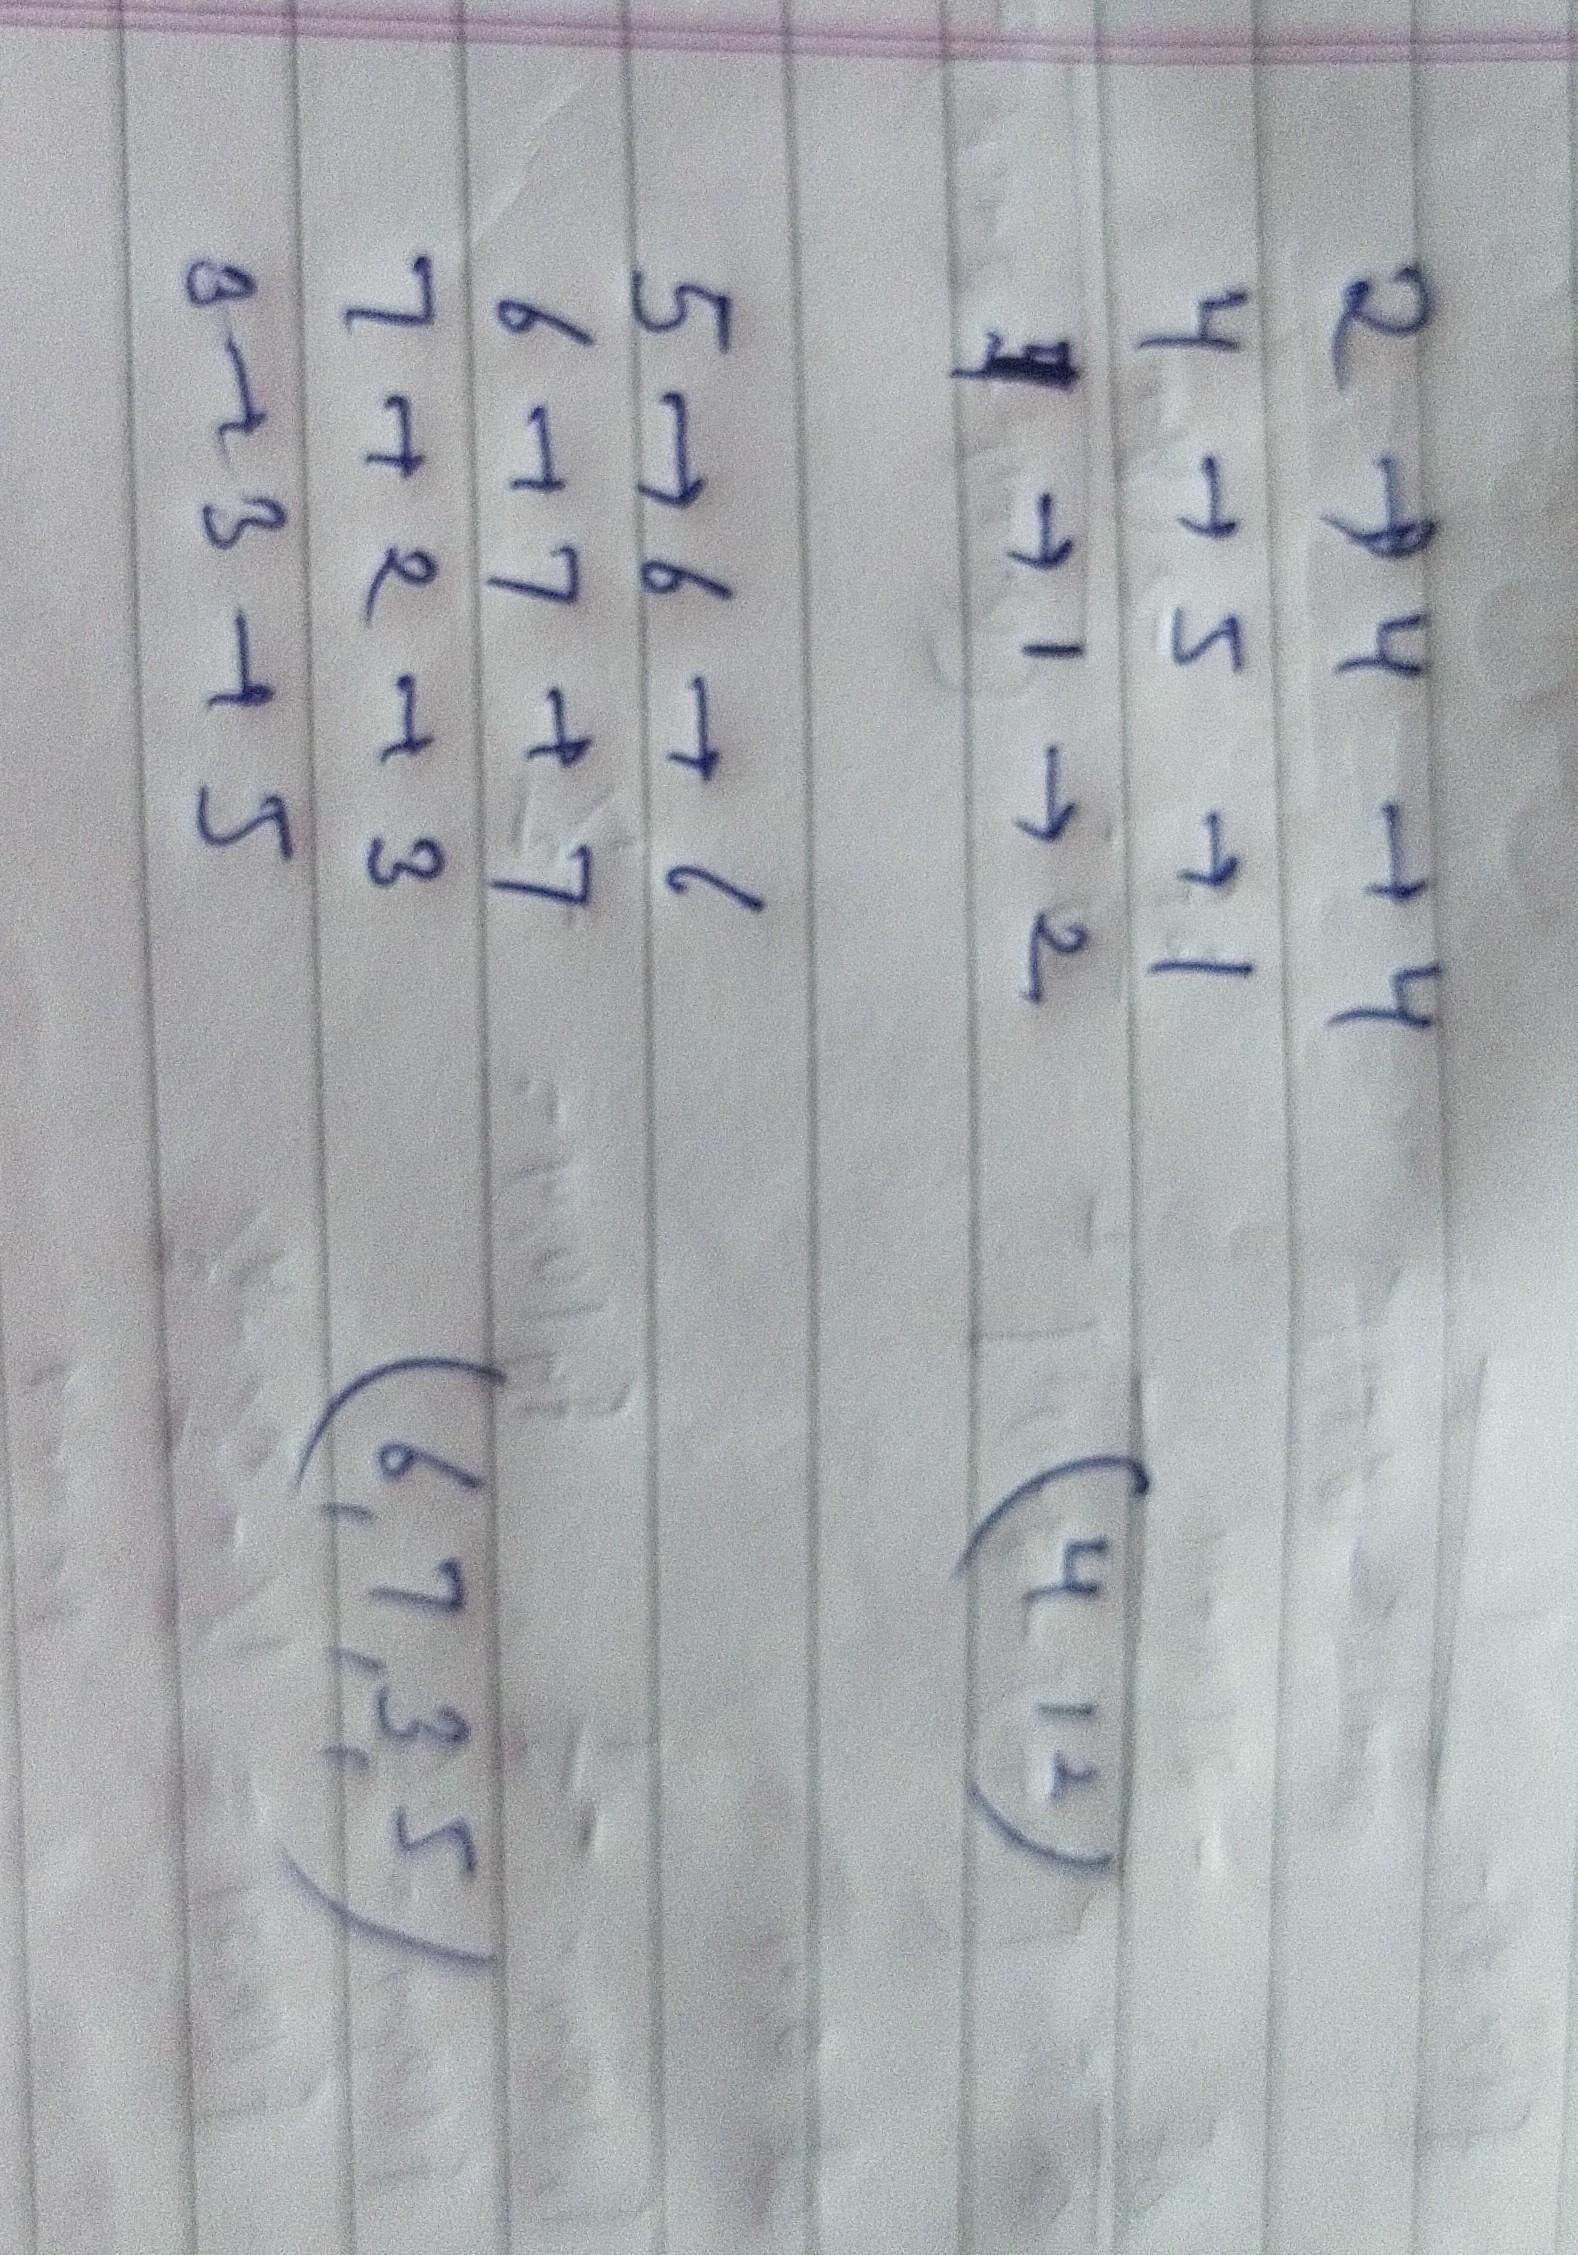 2 → 4 → 4
4 → 5 → 1
1 → 1 → 2 (4 1 2)
5 → 6 → 6
6 → 7 → 7
7 → 2 → 3 (6, 7, 3, 5)
8 → 3 → 5